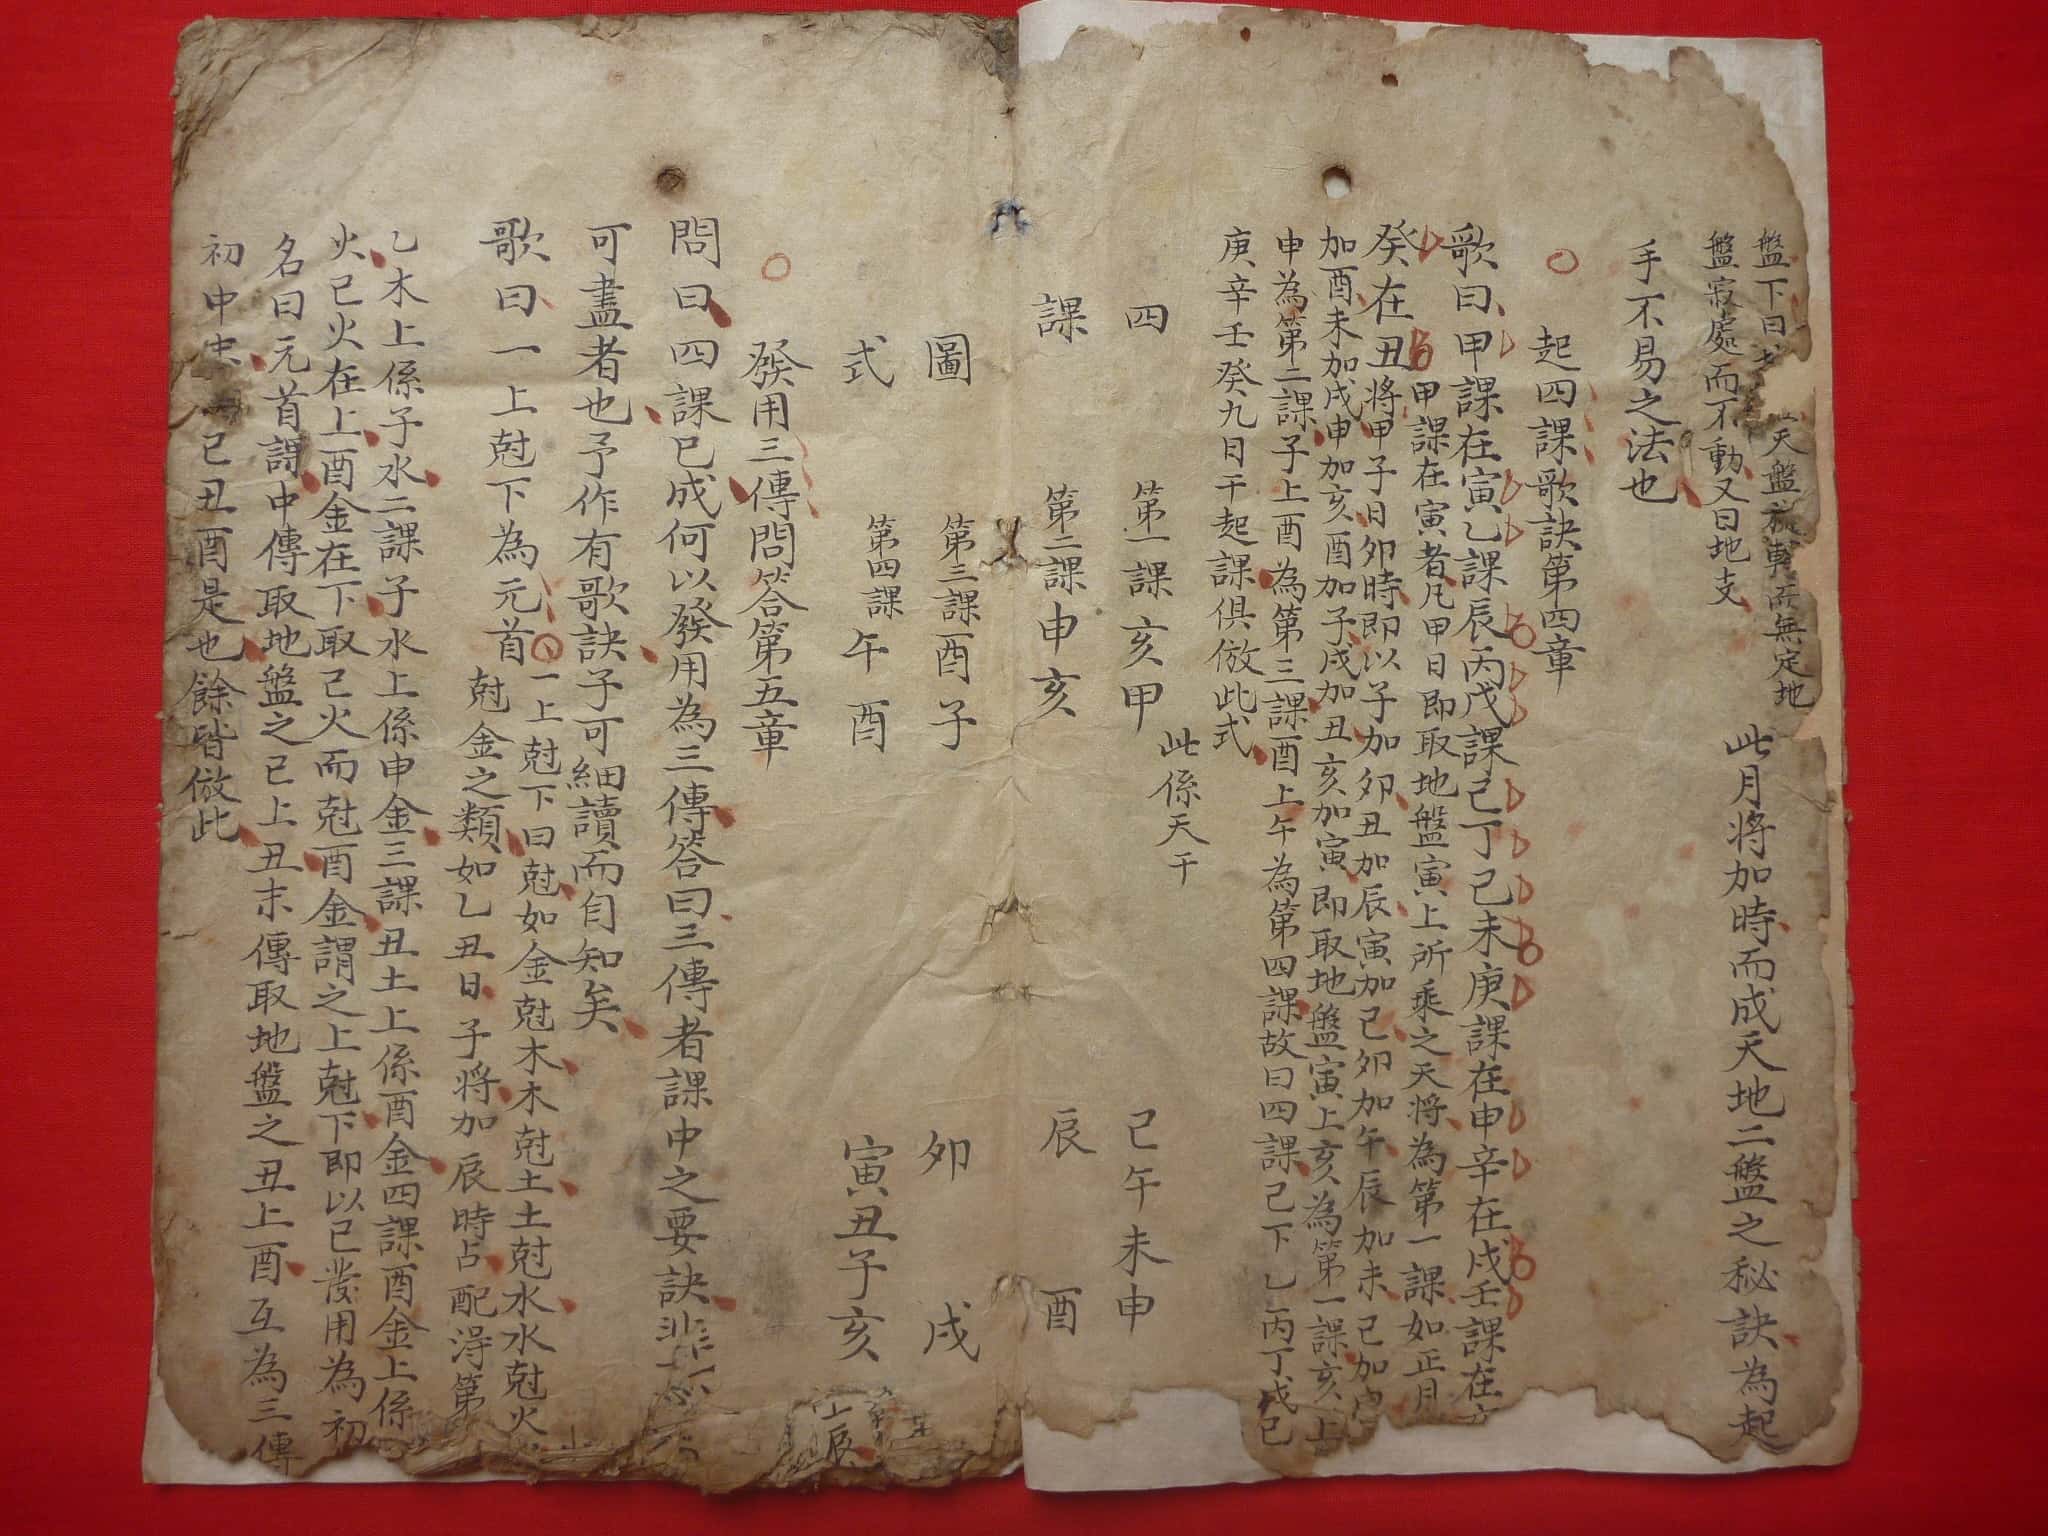 盤下曰 天盤旋轉而無定地
盤寂處而不動又曰地支
此月将加時而成天地二盤之秘訣為起
手不易之法也
○ 起四課歌訣第四章
歌曰甲課在寅乙課辰丙戊課己丁己未庚課在申辛在戌壬課在
癸在丑
甲課在寅者凡甲日即取地盤寅上所乘之天将為第一課如正月
将甲子日卯時即以子加卯丑加辰寅加己卯加午辰加未己加
加酉未加戌申加亥酉加子戌加丑亥加寅即取地盤寅上亥為第一課亥上
申為第二課子上酉為第三課酉上午為第四課故曰四課己下乙丙丁戊己
庚辛壬癸九日干起課俱倣此式
此係天干
四 第一課亥甲 己午未申
課 第二課申亥 辰 酉
圖 第三課酉子 卯 戌
式 第四課午酉 寅丑子亥
○ 發用三傳問答第五章
問曰四課已成何以發用為三傳答曰三傳者課中之要訣非
可盡者也予作有歌訣子可細讀而自知矣
歌曰一上尅下為元首
一上尅下曰尅如金尅木木尅土土尅水水尅火
尅金之類如乙丑日子将加辰時占配得第
乙木上係子水二課子水上係申金三課丑土上係酉金四課酉金上係
火己火在上酉金在下取己火而尅酉金謂之上尅下即以己發用為初
名曰元首課中傳取地盤之己上丑末傳取地盤之丑上酉互為三傳
初中末 己丑酉是也餘皆倣此